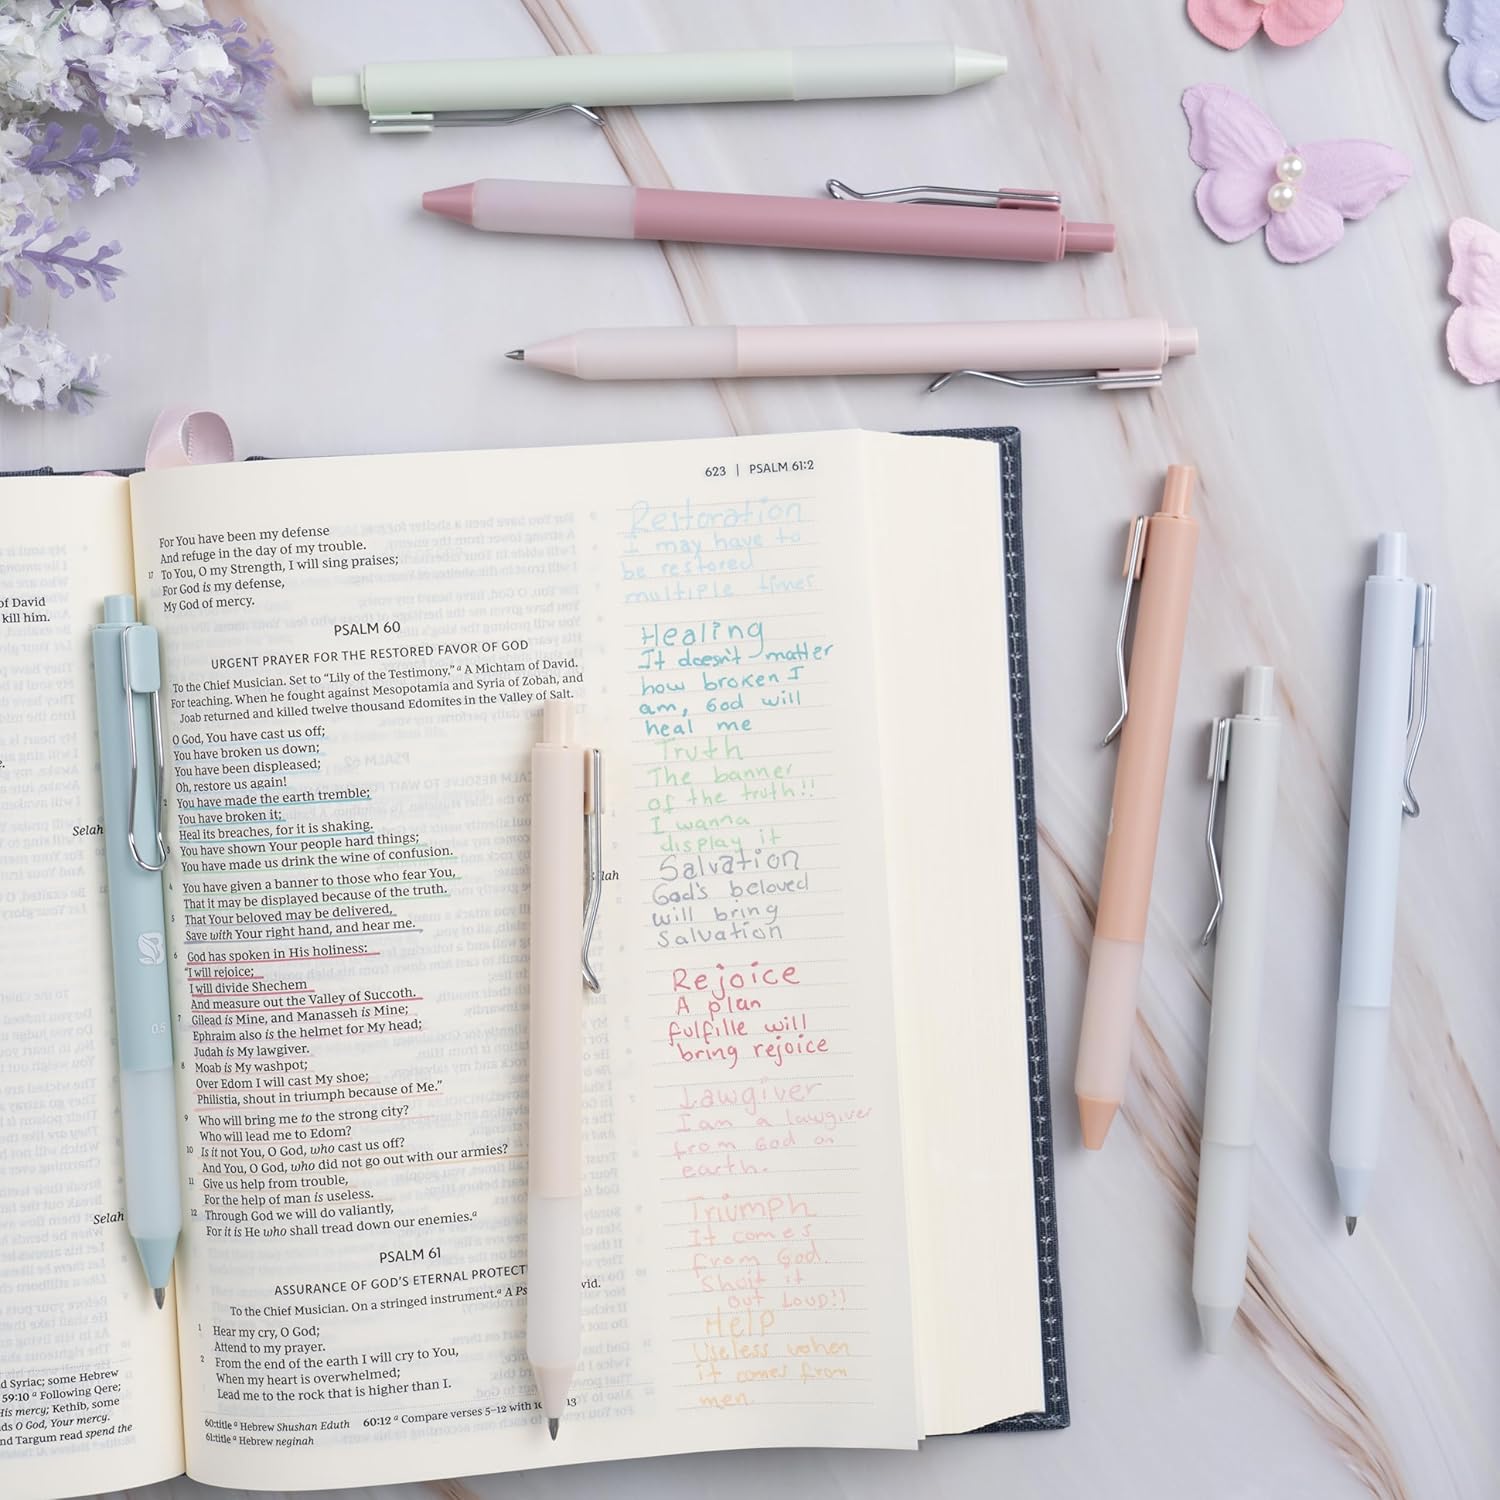 623 | PSALM 61:2
For You have been my defense
And refuge in the day of my trouble.
17 To You, O my Strength, I will sing praises;
For God is my defense,
My God of mercy.
PSALM 60
URGENT PRAYER FOR THE RESTORED FAVOR OF GOD
To the Chief Musician. Set to “Lily of the Testimony.” a A Michtam of David.
For teaching. When he fought against Mesopotamia and Syria of Zobah, and
Joab returned and killed twelve thousand Edomites in the Valley of Salt.
O God, You have cast us off;
You have broken us down;
You have been displeased;
Oh, restore us again!
2 You have made the earth tremble;
You have broken it;
Heal its breaches, for it is shaking.
3 You have shown Your people hard things;
You have made us drink the wine of confusion.
4 You have given a banner to those who fear You,
That it may be displayed because of the truth.
5 That Your beloved may be delivered,
Save with Your right hand, and hear me.
6 God has spoken in His holiness:
“I will rejoice;
I will divide Shechem
And measure out the Valley of Succoth.
7 Gilead is Mine, and Manasseh is Mine;
Ephraim also is the helmet for My head;
Judah is My lawgiver.
8 Moab is My washpot;
Over Edom I will cast My shoe;
Philistia, shout in triumph because of Me.”
9 Who will bring me to the strong city?
Who will lead me to Edom?
10 Is it not You, O God, who cast us off?
And You, O God, who did not go out with our armies?
11 Give us help from trouble,
For the help of man is useless.
12 Through God we will do valiantly,
For it is He who shall tread down our enemies. a
PSALM 61
ASSURANCE OF GOD'S ETERNAL PROTECT
To the Chief Musician. On a stringed instrument. a A Ps vid.
1 Hear my cry, O God;
Attend to my prayer.
2 From the end of the earth I will cry to You,
When my heart is overwhelmed;
Lead me to the rock that is higher than I.
60:title a Hebrew Shushan Eduth 60:12 a Compare verses 5–12 with 13
61:title a Hebrew neginah
Restoration
I may have to
be restored
multiple times
Healing
It doesn't matter
how broken I
am, God will
heal me
Truth
The banner
of the truth!!
I wanna
display it
Salvation
God's beloved
will bring
Salvation
Rejoice
A plan
fulfille will
bring rejoice
Lawgiver
I am a lawgiver
from God on
earth.
Triumph
It comes
from God.
Shout it
out Loud!!
Help
Useless when
it comes from
men.
of David
kill him.
Selah
Selah
d Syriac; some Hebrew
59:10 a Following Qere;
His mercy; Kethib, some
ds O God, Your mercy.
nd Targum read spend the
0.5